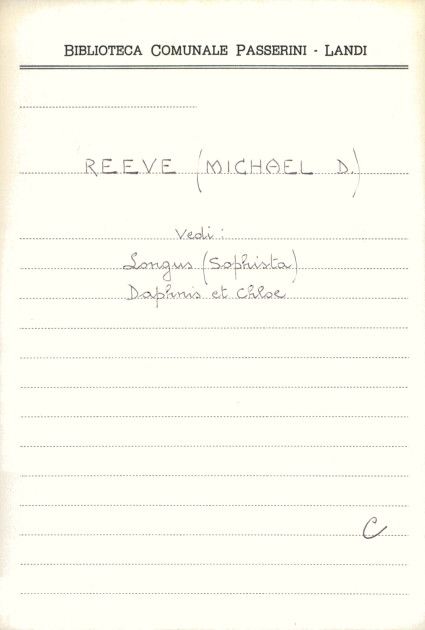 BIBLIOTECA COMUNALE PASSERINI - LANDI
REEVE (MICHAEL D.)
Vedi:
Longus (Sophista)
Daphnis et Chloe
C